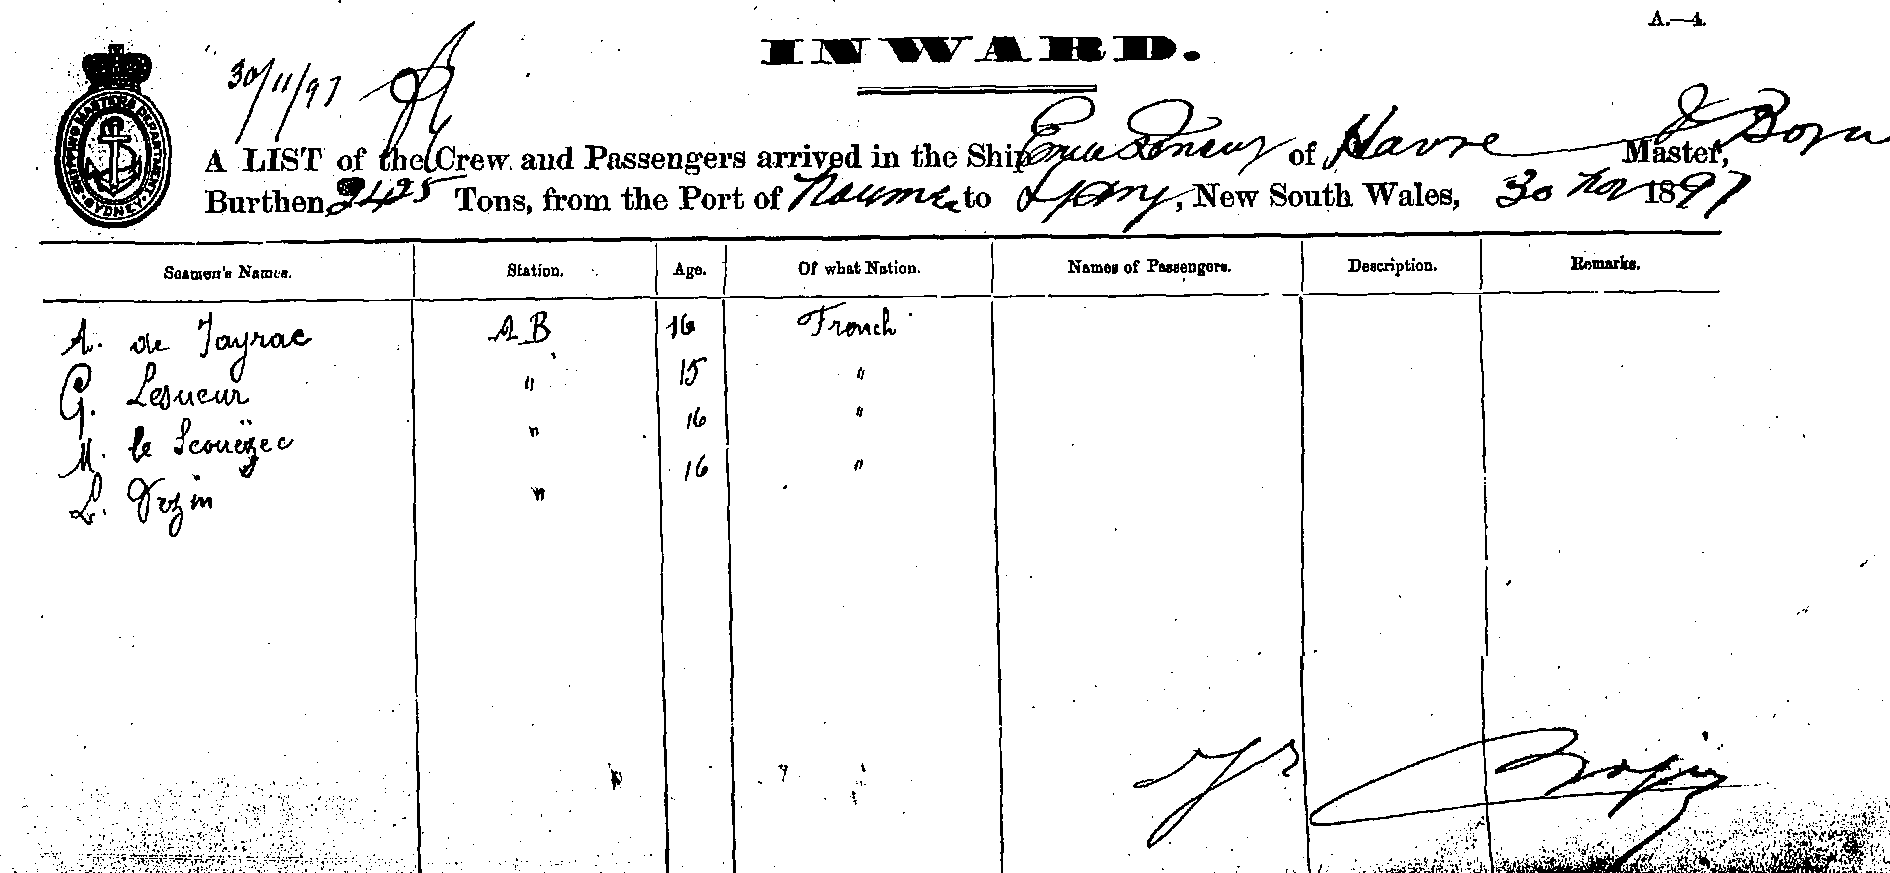 A.—4.
INWARD.
30/11/97
SHIPPING MASTERS DEPARTMENT SYDNEY
A LIST of the Crew and Passengers arrived in the Ship of Havre Master,
Burthen 3425 Tons, from the Port of Noumea to Sydney, New South Wales, 30 Nov 1897
Seamen's Names. Station. Age. Of what Nation. Names of Passengers. Description. Remarks.
A. de Tayrac AB 16 French
G. Lesueur " 15 "
M. le Scouëzec " 16 "
L. Vezin " 16 "